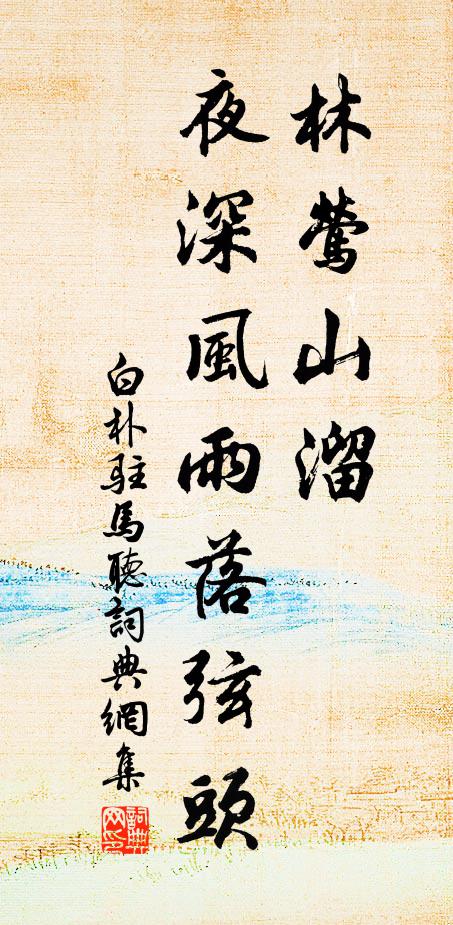 林鶯山溜
夜深風雨落弦頭
白朴駐馬聽詞典網集
詞典網印